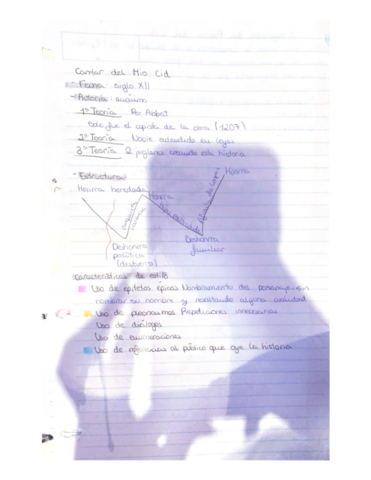 Cantar del Mio Cid
- Fecha: siglo XII
- Autoría: anónimo
1ª Teoría Per Abbat
Solo fue el copista de la obra (1207)
2ª Teoría
3ª Teoría 2 juglares crearon esta historia
- Estructura:
Honra heredada Honra Honra
Deshonra
política
(destierro)
Deshonra
familiar
Características de estilo
Uso de epítetos épicos Nombramiento del personaje sin
nombrar su nombre y resaltando alguna cualidad
Uso de pleonasmos Repeticiones innecesarias
Uso de diálogos
Uso de enumeraciones
Uso de referencias al público que oye la historia